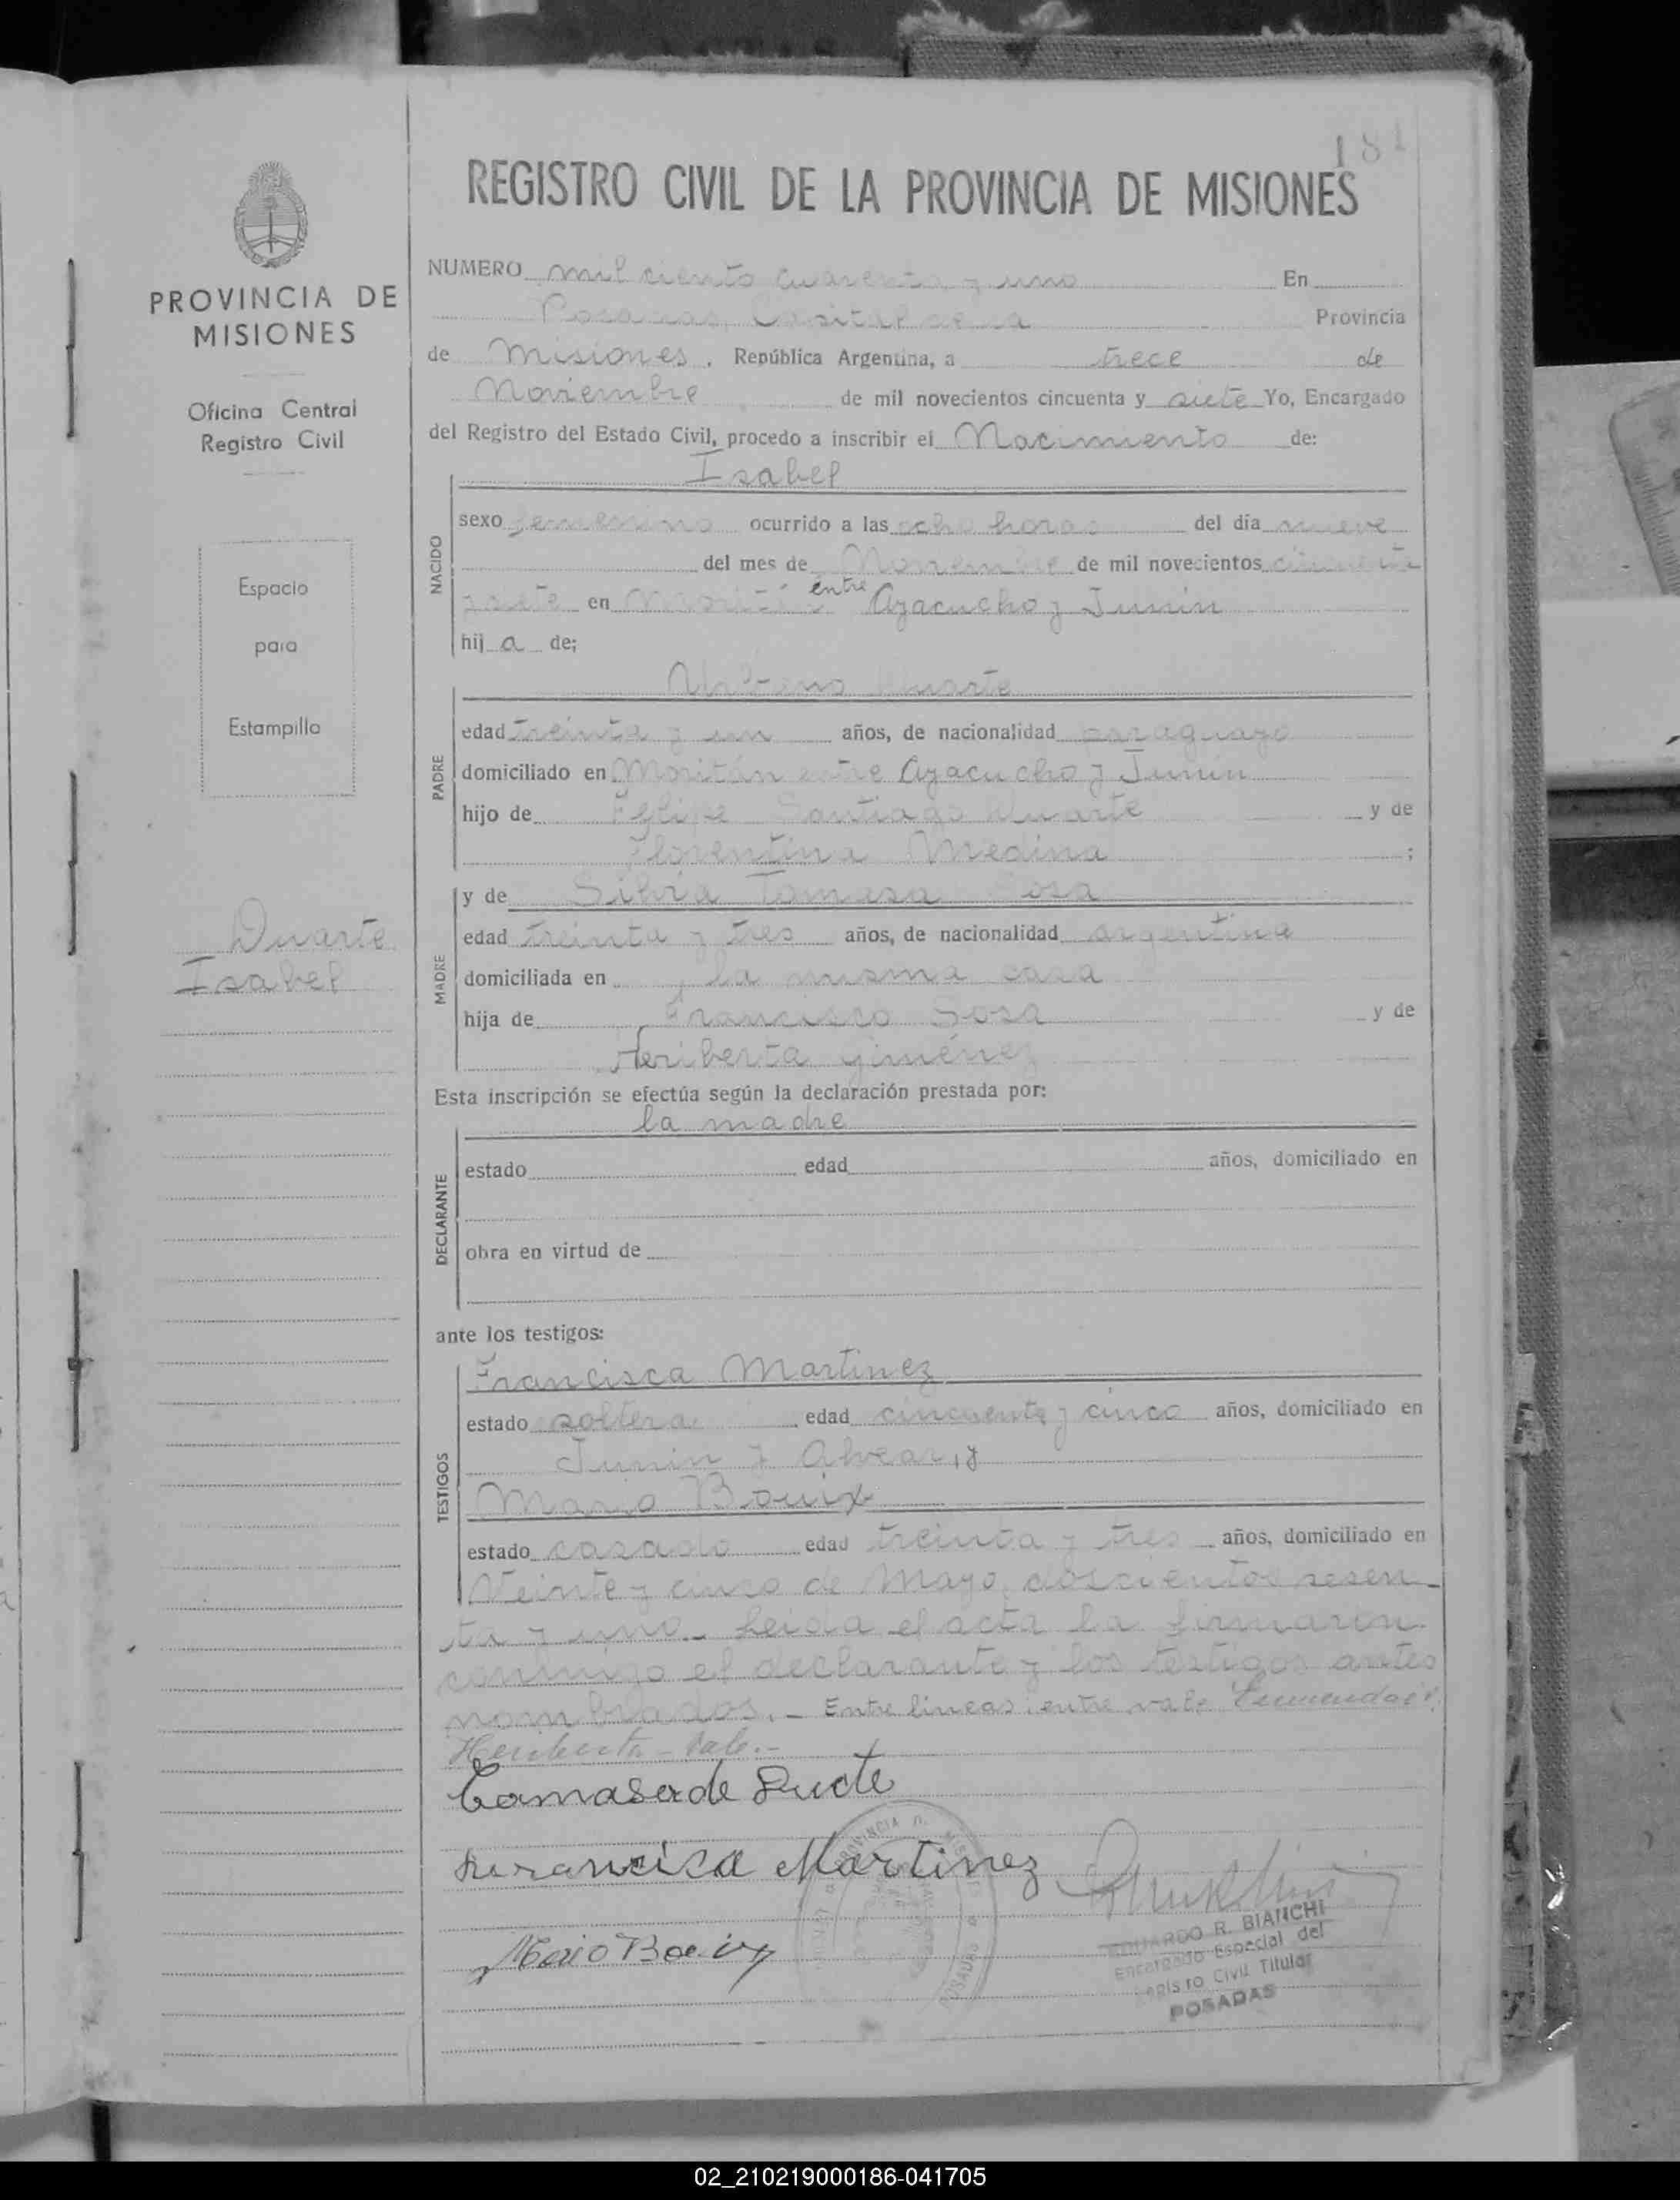 181
REGISTRO CIVIL DE LA PROVINCIA DE MISIONES
PROVINCIA DE
MISIONES
Oficina Central
Registro Civil
Espacio
para
Estampilla
Duarte
Isabel
NUMERO mil ciento cuarenta y uno En
Posadas, Capital de la Provincia
de Misiones, República Argentina, a trece de
Noviembre de mil novecientos cincuenta y siete Yo, Encargado
del Registro del Estado Civil, procedo a inscribir el Nacimiento de:
Isabel
NACIDO
sexo femenino ocurrido a las ocho horas del día nueve
del mes de Noviembre de mil novecientos cincuenta
y siete en entre Ayacucho y Junín
hij a de;
Duarte
PADRE
edad treinta y un años, de nacionalidad paraguaya
domiciliado en Moritán entre Ayacucho y Junín
hijo de Felipe Santiago Duarte y de
Florentina Medina ;
y de Silvia Tomasa Sosa
MADRE
edad treinta y tres años, de nacionalidad argentina
domiciliada en la misma casa
hija de Francisco Sosa y de
Heriberta Giménez
Esta inscripción se efectúa según la declaración prestada por:
la madre
DECLARANTE
estado edad años, domiciliado en
obra en virtud de
ante los testigos:
Francisca Martinez
TESTIGOS
estado soltera edad cincuenta y cinco años, domiciliado en
Junin y Alvear, y
Mario Bouix
estado casado edad treinta y tres años, domiciliado en
Veinte y cinco de Mayo, doscientos sesen-
ta y uno.- Leida el acta la firmaron
conmigo el declarante y los testigos antes
nombrados.- Entre lineas: entre vale Enmendado:
Heriberta - Vale.-
Tomasa de
Francisca Martinez
Mario
EDUARDO R. BIANCHI
Encargado Especial del
Registro Civil Titular
POSADAS
02_210219000186-041705